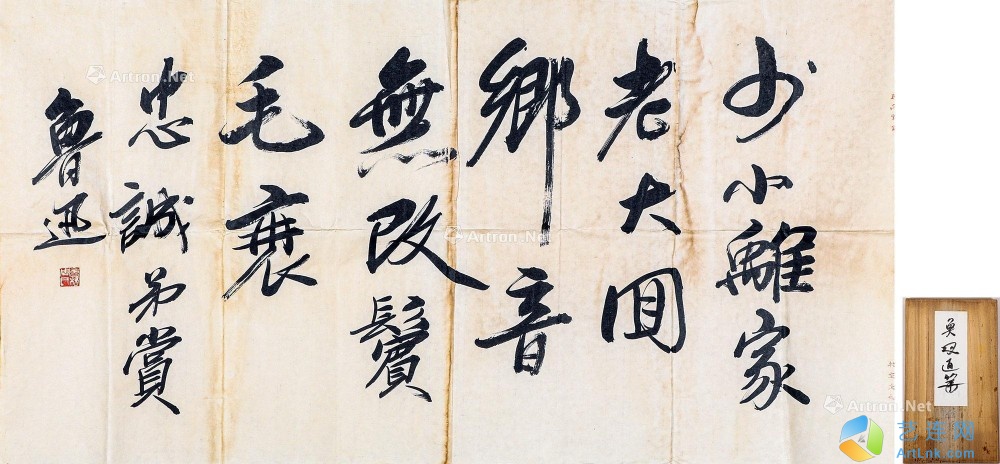 少小離家
老大囬
鄉音
無改鬢
毛衰
忠誠弟賞
魯迅
Artron.Net
Artron.Net
Artron.Net
Artron.Net
ArtLnk.com